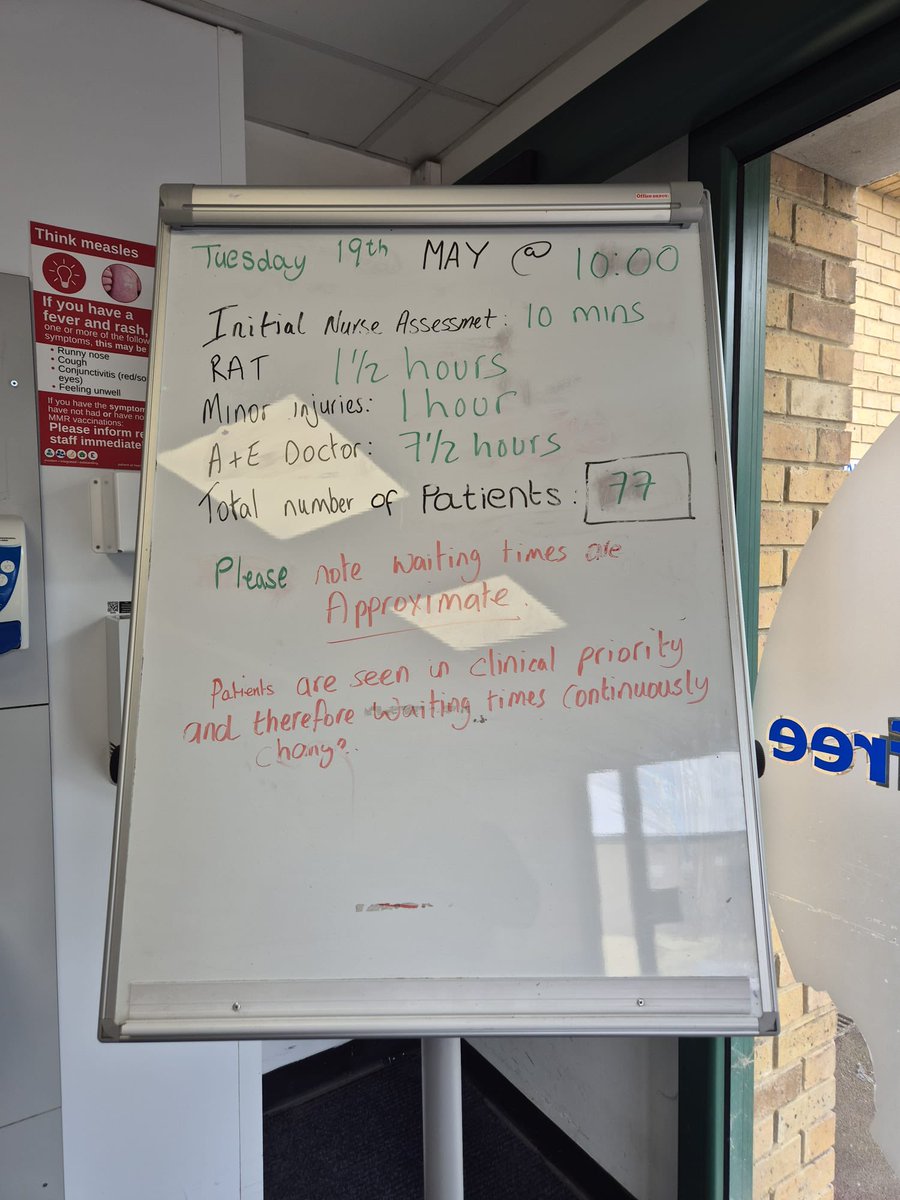 Office DEPOT
Tuesday 19th MAY @ 10:00
Initial Nurse Assessmet: 10 mins
RAT 1½ hours
Minor injuries: 1 hour
A+E Doctor: 7½ hours
Total number of Patients: 77
Please note waiting times are
Approximate.
Patients are seen in clinical priority
and therefore waiting times continuously
change.
Think measles
If you have a
fever and rash,
one or more of the follow
symptoms, this may be
• Runny nose
• Cough
• Conjunctivitis (red/so
eyes)
• Feeling unwell
If you have the symptom
have not had or have no
MMR vaccinations:
Please inform re
staff immediate
free